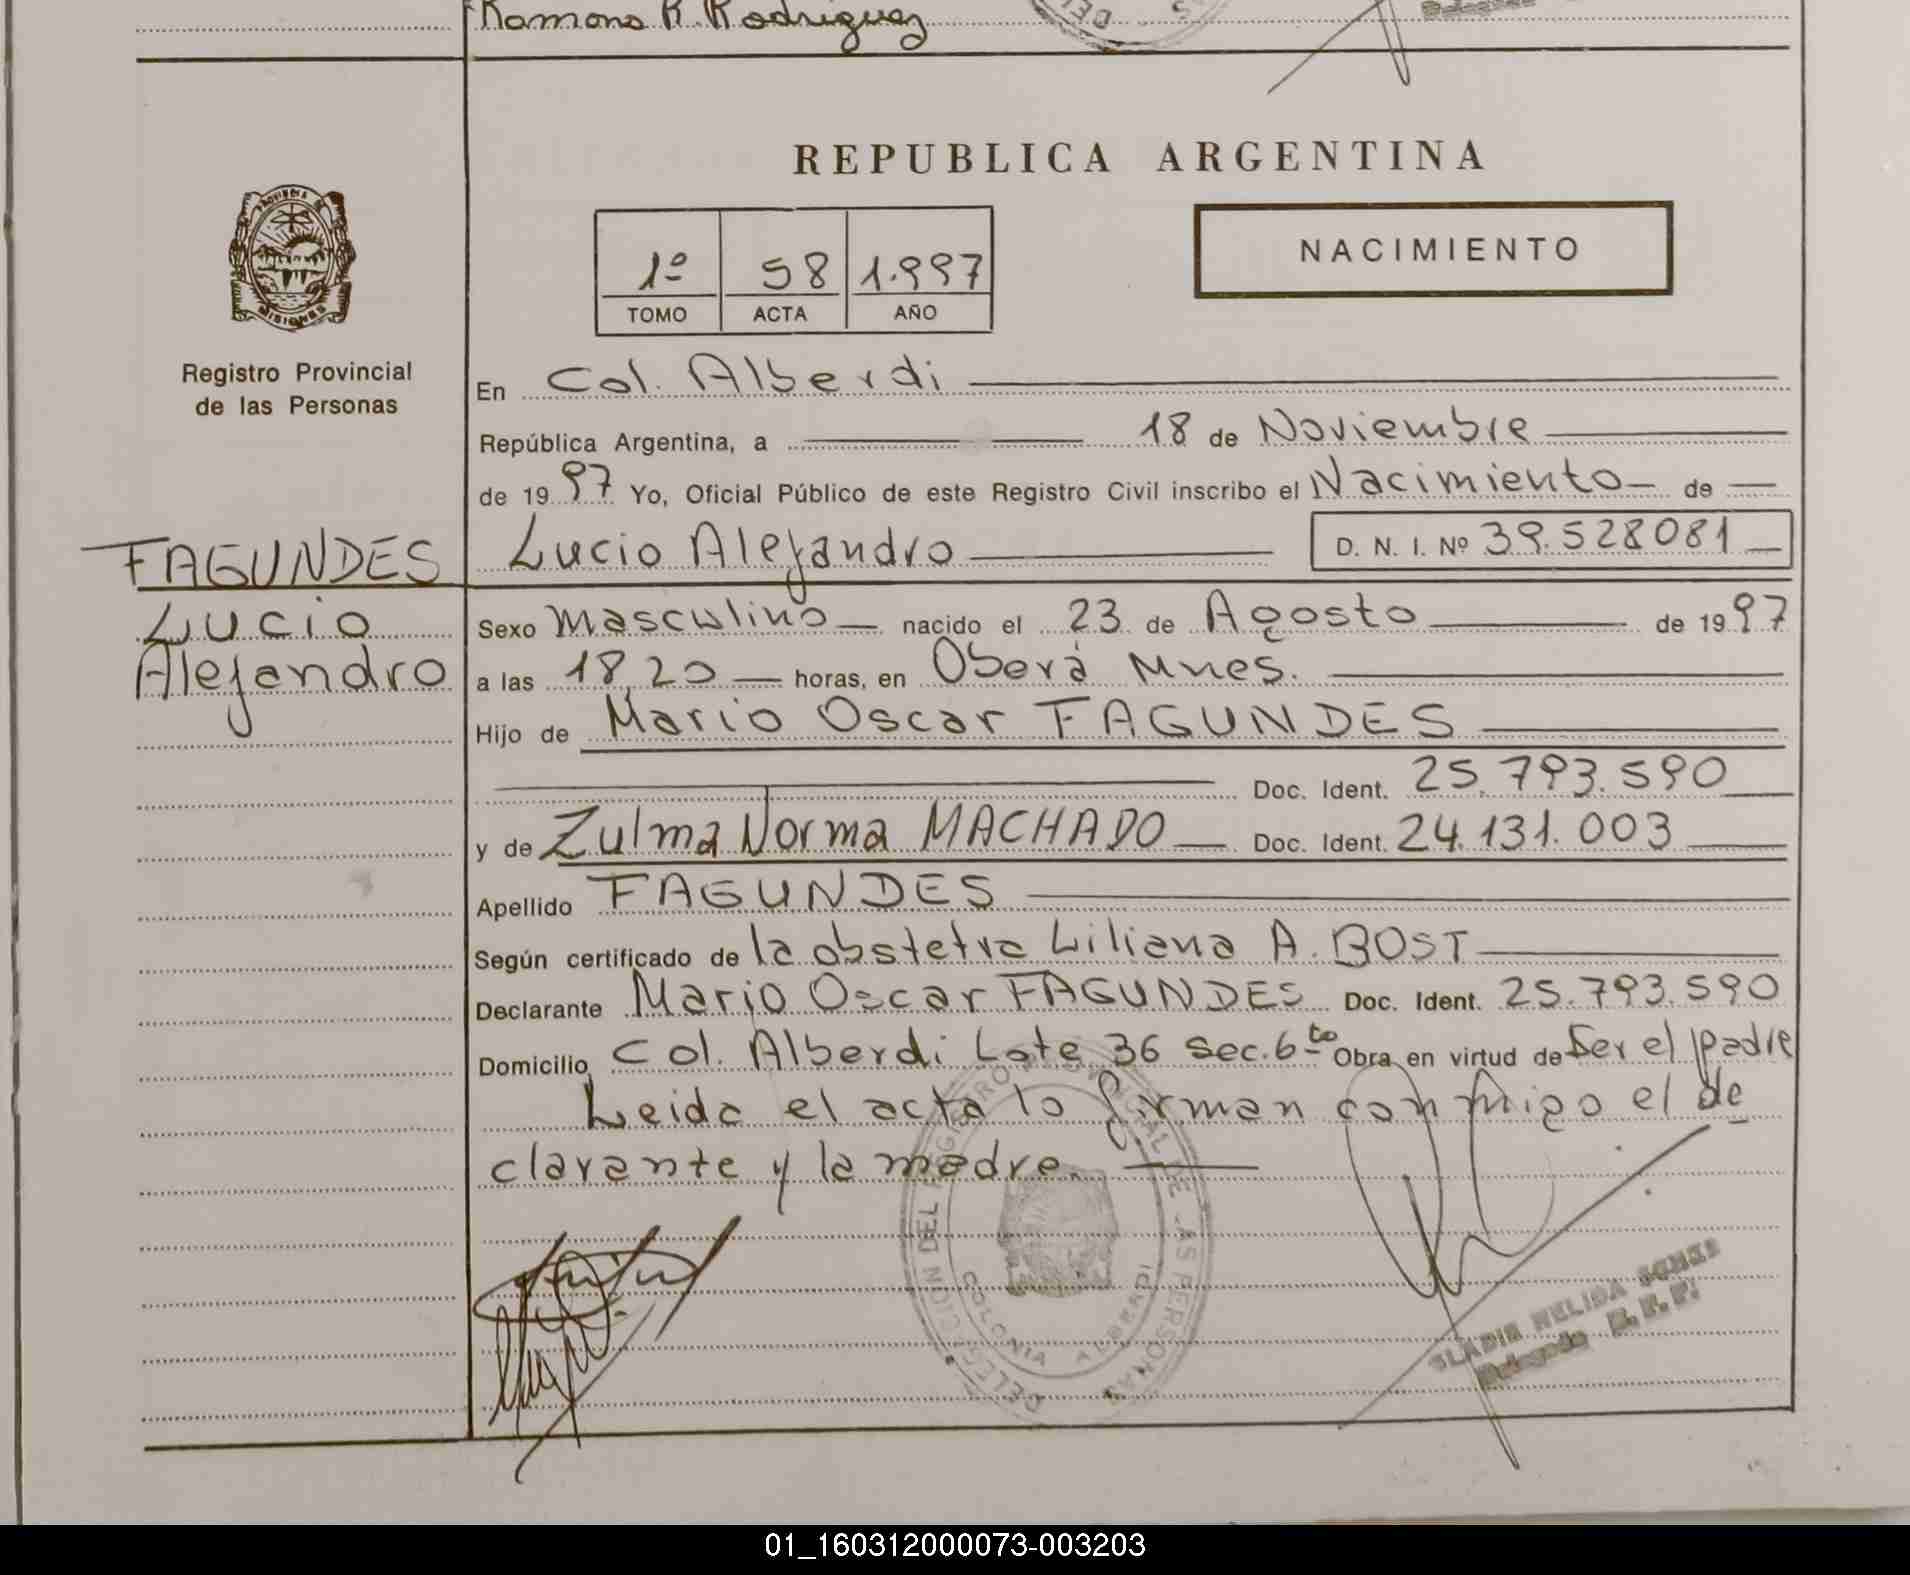 Ramona R. Rodriguez
REPUBLICA ARGENTINA
PROVINCIA DE
MISIONES
Registro Provincial
de las Personas
1º 58 1.997
TOMO ACTA AÑO
NACIMIENTO
En Col. Alberdi
República Argentina, a 18 de Noviembre
de 1997 Yo, Oficial Público de este Registro Civil inscribo el Nacimiento de
FAGUNDES Lucio Alejandro D. N. I. Nº 39.528081
Lucio
Alejandro
Sexo Masculino nacido el 23 de Agosto de 1997
a las 18,20 horas, en Oberá Mnes.
Hijo de Mario Oscar FAGUNDES
Doc. Ident. 25.793.590
y de Zulma Norma MACHADO Doc. Ident. 24.131.003
Apellido FAGUNDES
Según certificado de la obstetra Liliana A. BOST
Declarante Mario Oscar FAGUNDES Doc. Ident. 25.793.590
Domicilio Col. Alberdi Lote 36 sec. 6to Obra en virtud de Ser el padre
Leida el acta lo firman conmigo el de
clarante y la madre.
DELEGACION DEL REGISTRO PROVINCIAL DE LAS PERSONAS
COLONIA ALBERDI
NELIDA
Delegada R. P. P.
01_160312000073-003203